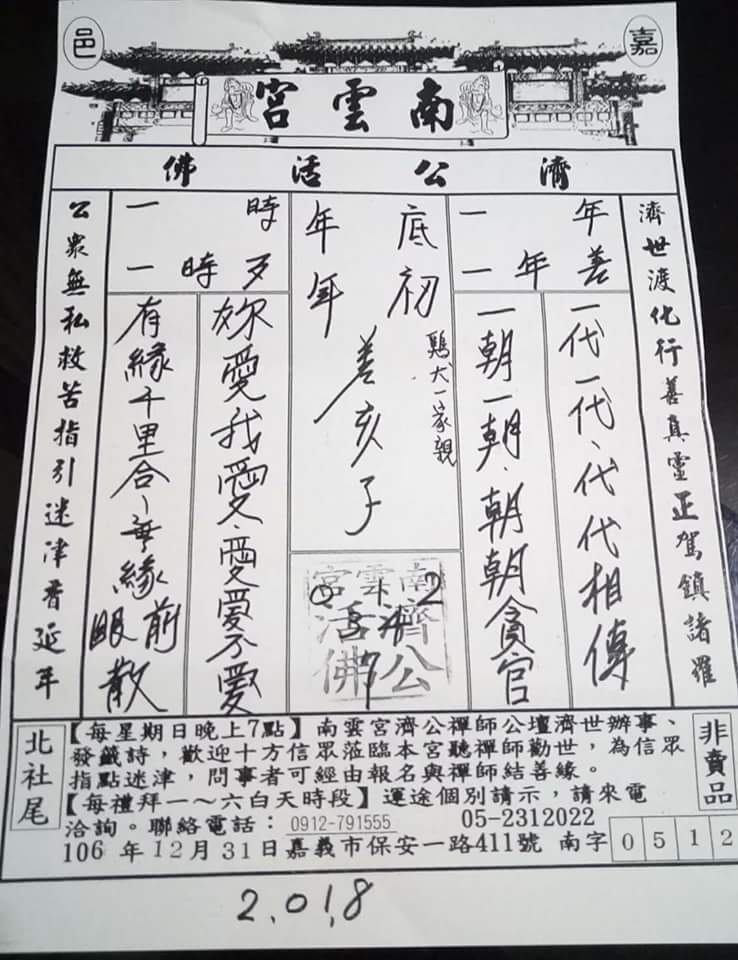 嘉 邑
南雲宮
濟公活佛
濟世渡化行善真靈正駕鎮諸羅
年一
善年一
一代一代、代代相傳
一朝一朝、朝朝貪官
底年
初年
鷄犬一家親
善亥子
南雲宮
濟公活佛
時一
歹時一
妳愛我愛、愛愛不愛
有緣千里合、無緣眼前散
公眾無私救苦指引迷津香延年
北社尾
【每星期日晚上7點】南雲宮濟公禪師公壇濟世辦事、
發籤詩，歡迎十方信眾蒞臨本宮聽禪師勸世，為信眾
指點迷津，問事者可經由報名與禪師結善緣。
【每禮拜一～六白天時段】運途個別請示，請來電
洽詢。聯絡電話：0912-791555 05-2312022
106年12月31日嘉義市保安一路411號 南字 0512
非賣品
2.0!8